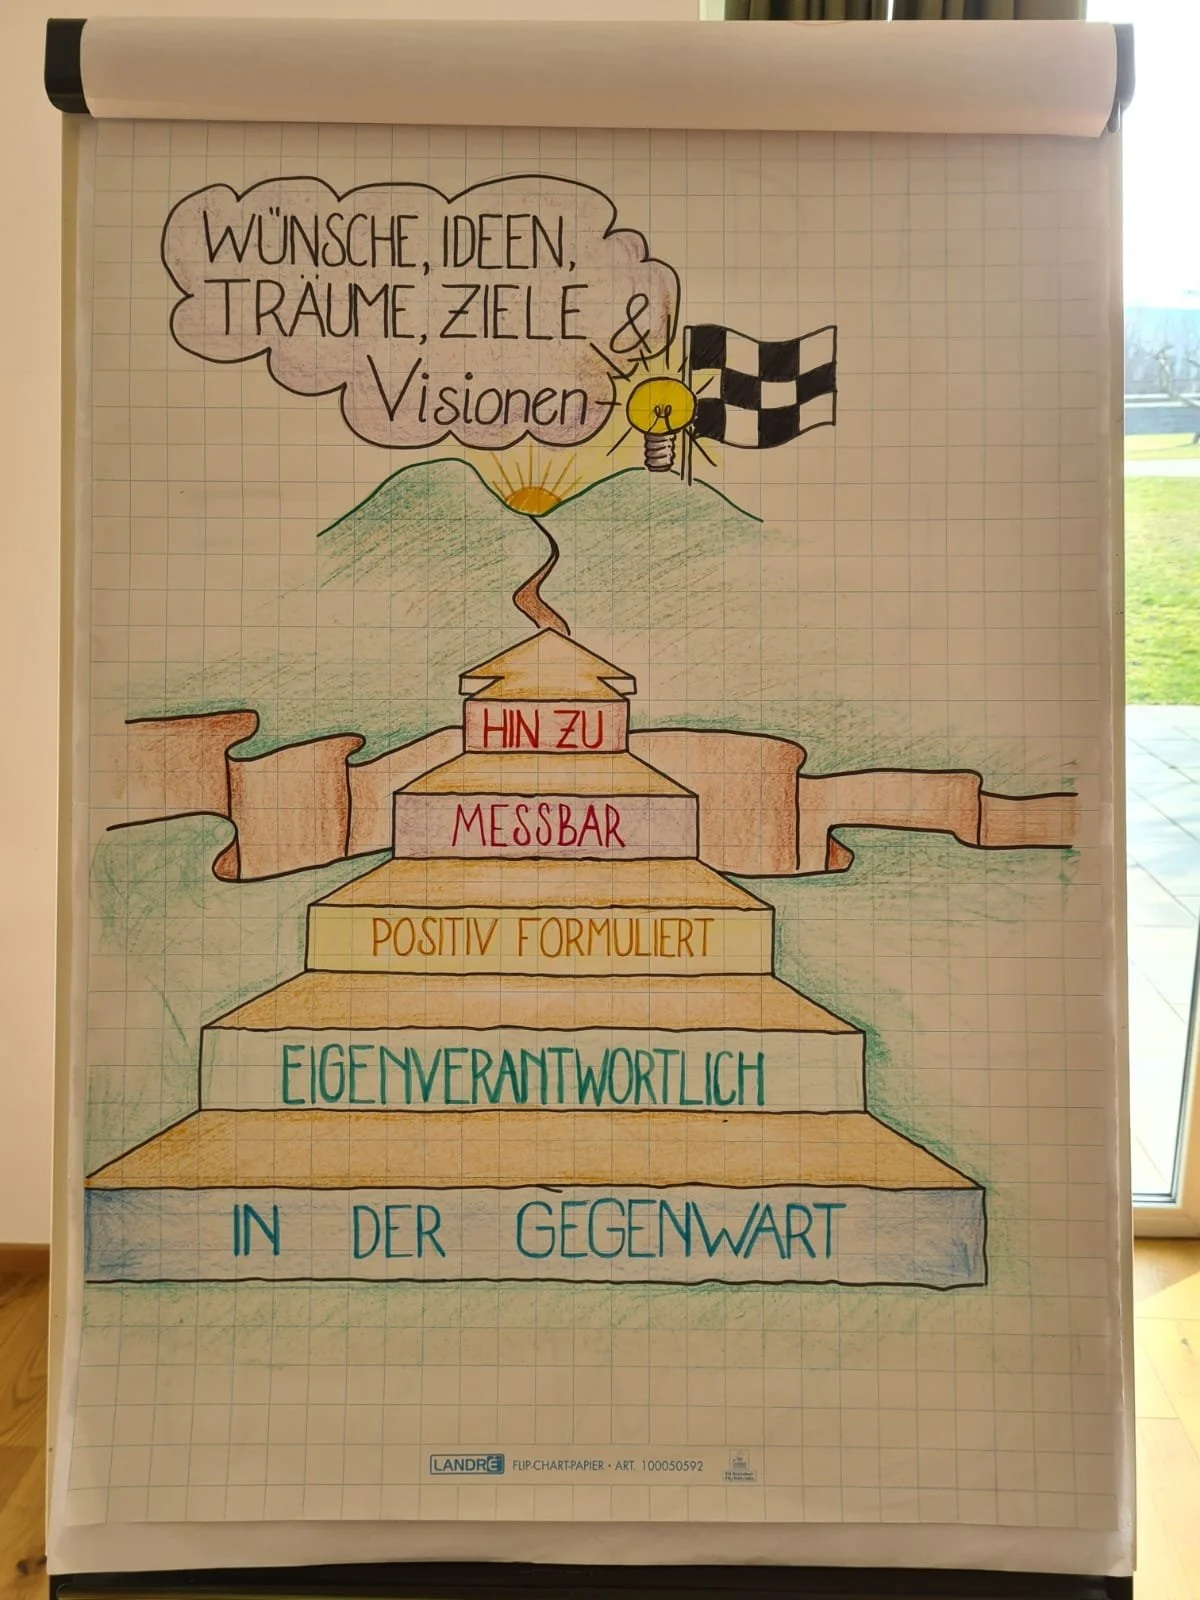 WÜNSCHE, IDEEN,
TRÄUME, ZIELE &
Visionen
HIN ZU
MESSBAR
POSITIV FORMULIERT
EIGENVERANTWORTLICH
IN DER GEGENWART
LANDRÉ FLIP-CHART-PAPIER • ART. 100050592